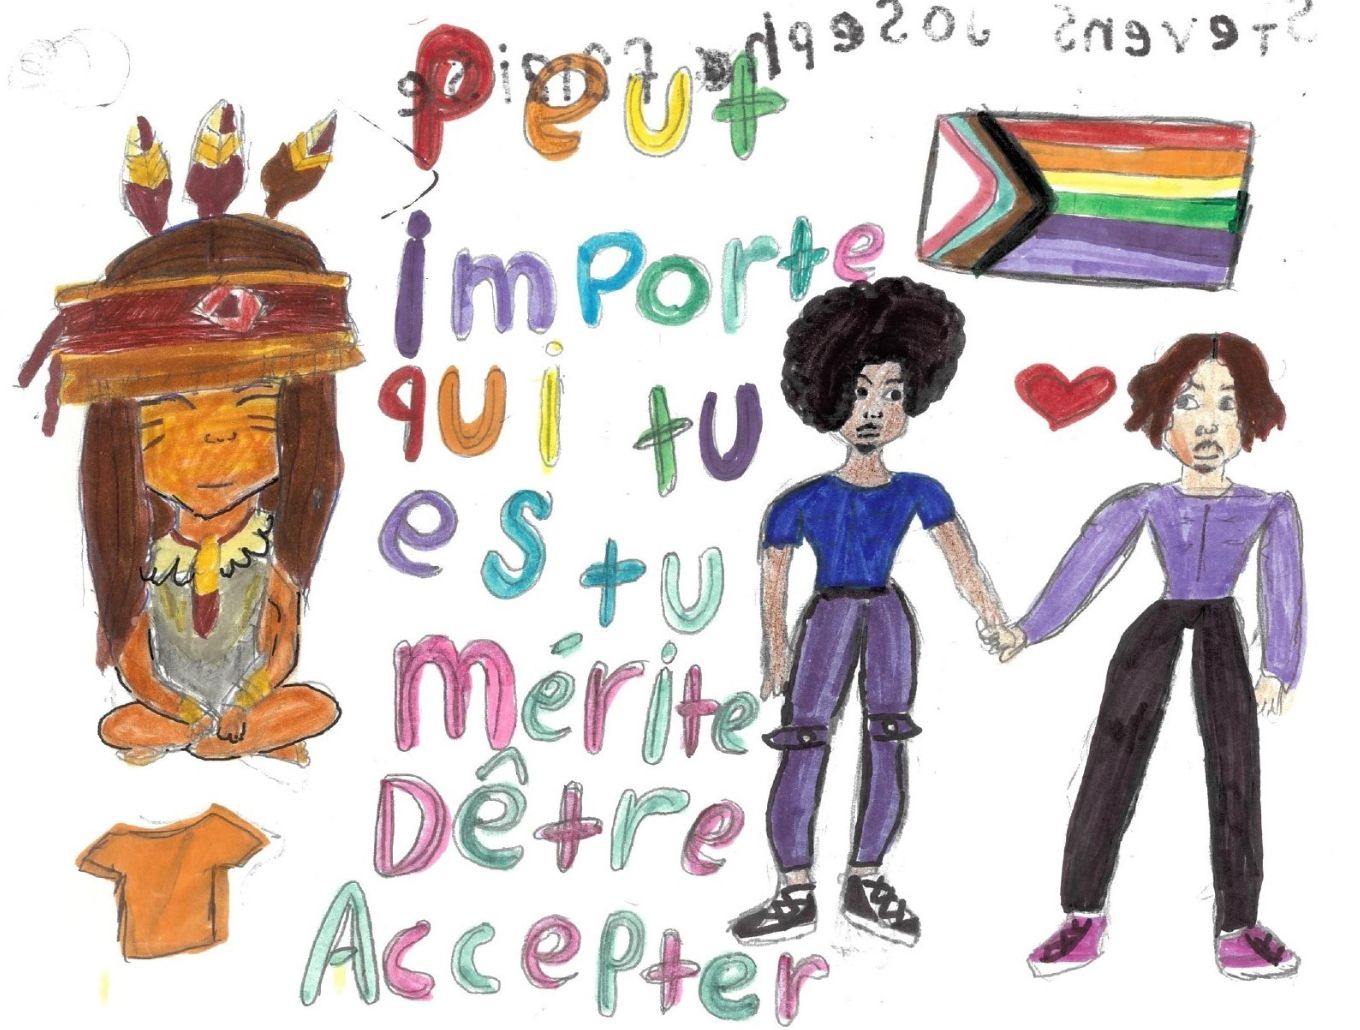 Stevens Joseph
Peut
importe
qui tu
es tu
mérite
Dêtre
Accepter